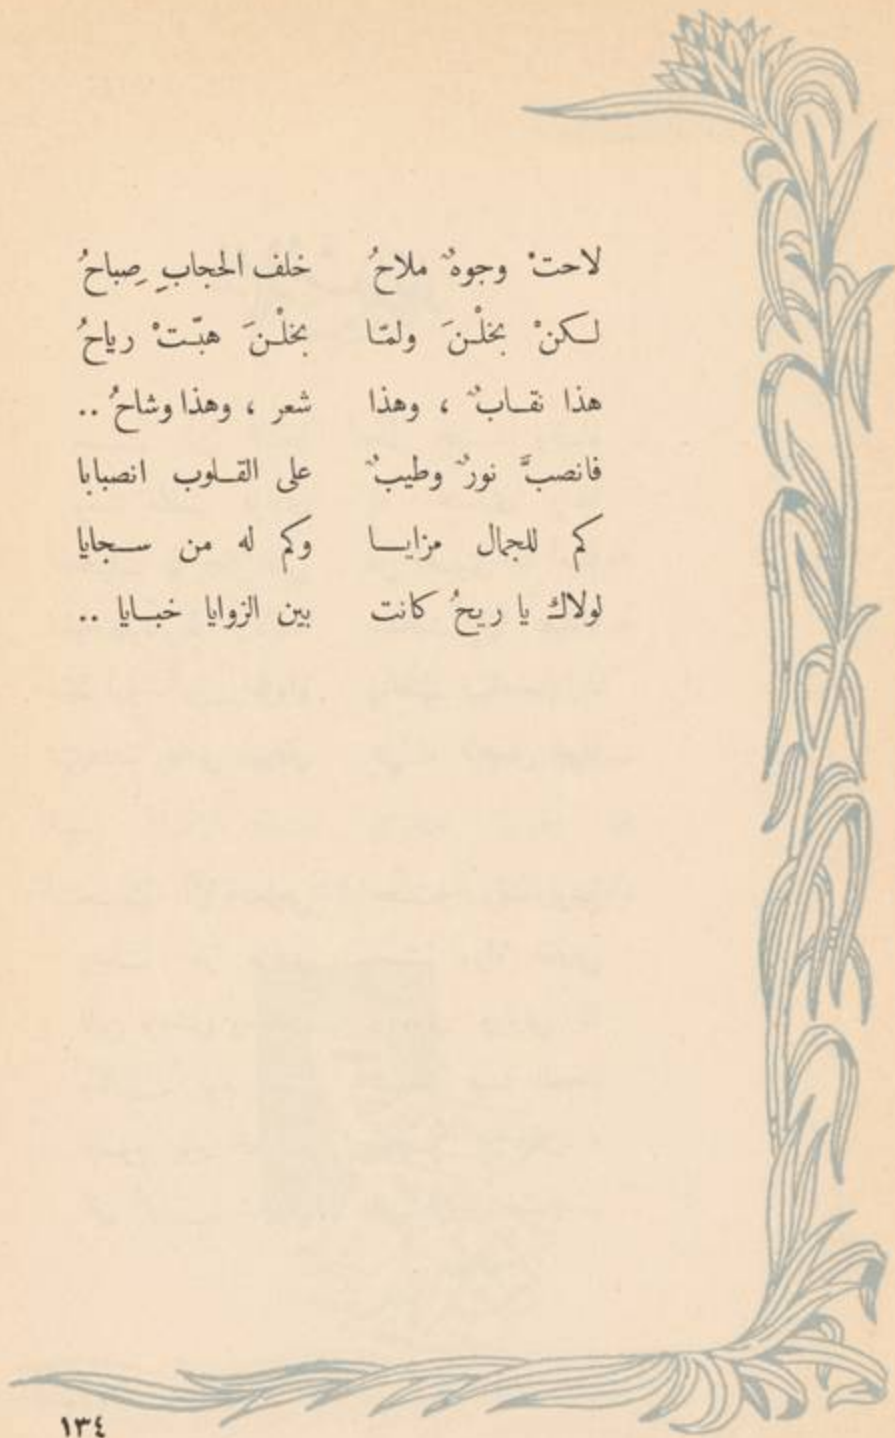 لاحتْ وجوهٌ ملاحُ خلف الحجابِ صِباحُ
لكنْ بخلْنَ ولمّا بخلْنَ هبّتْ رياحُ
هذا نقابٌ ، وهذا شعر ، وهذا وشاحُ ..
فانصبَّ نورٌ وطيبٌ على القلوب انصبابا
كم للجمال مزايا وكم له من سجايا
لولاك يا ريحُ كانت بين الزوايا خبايا ..
١٣٤